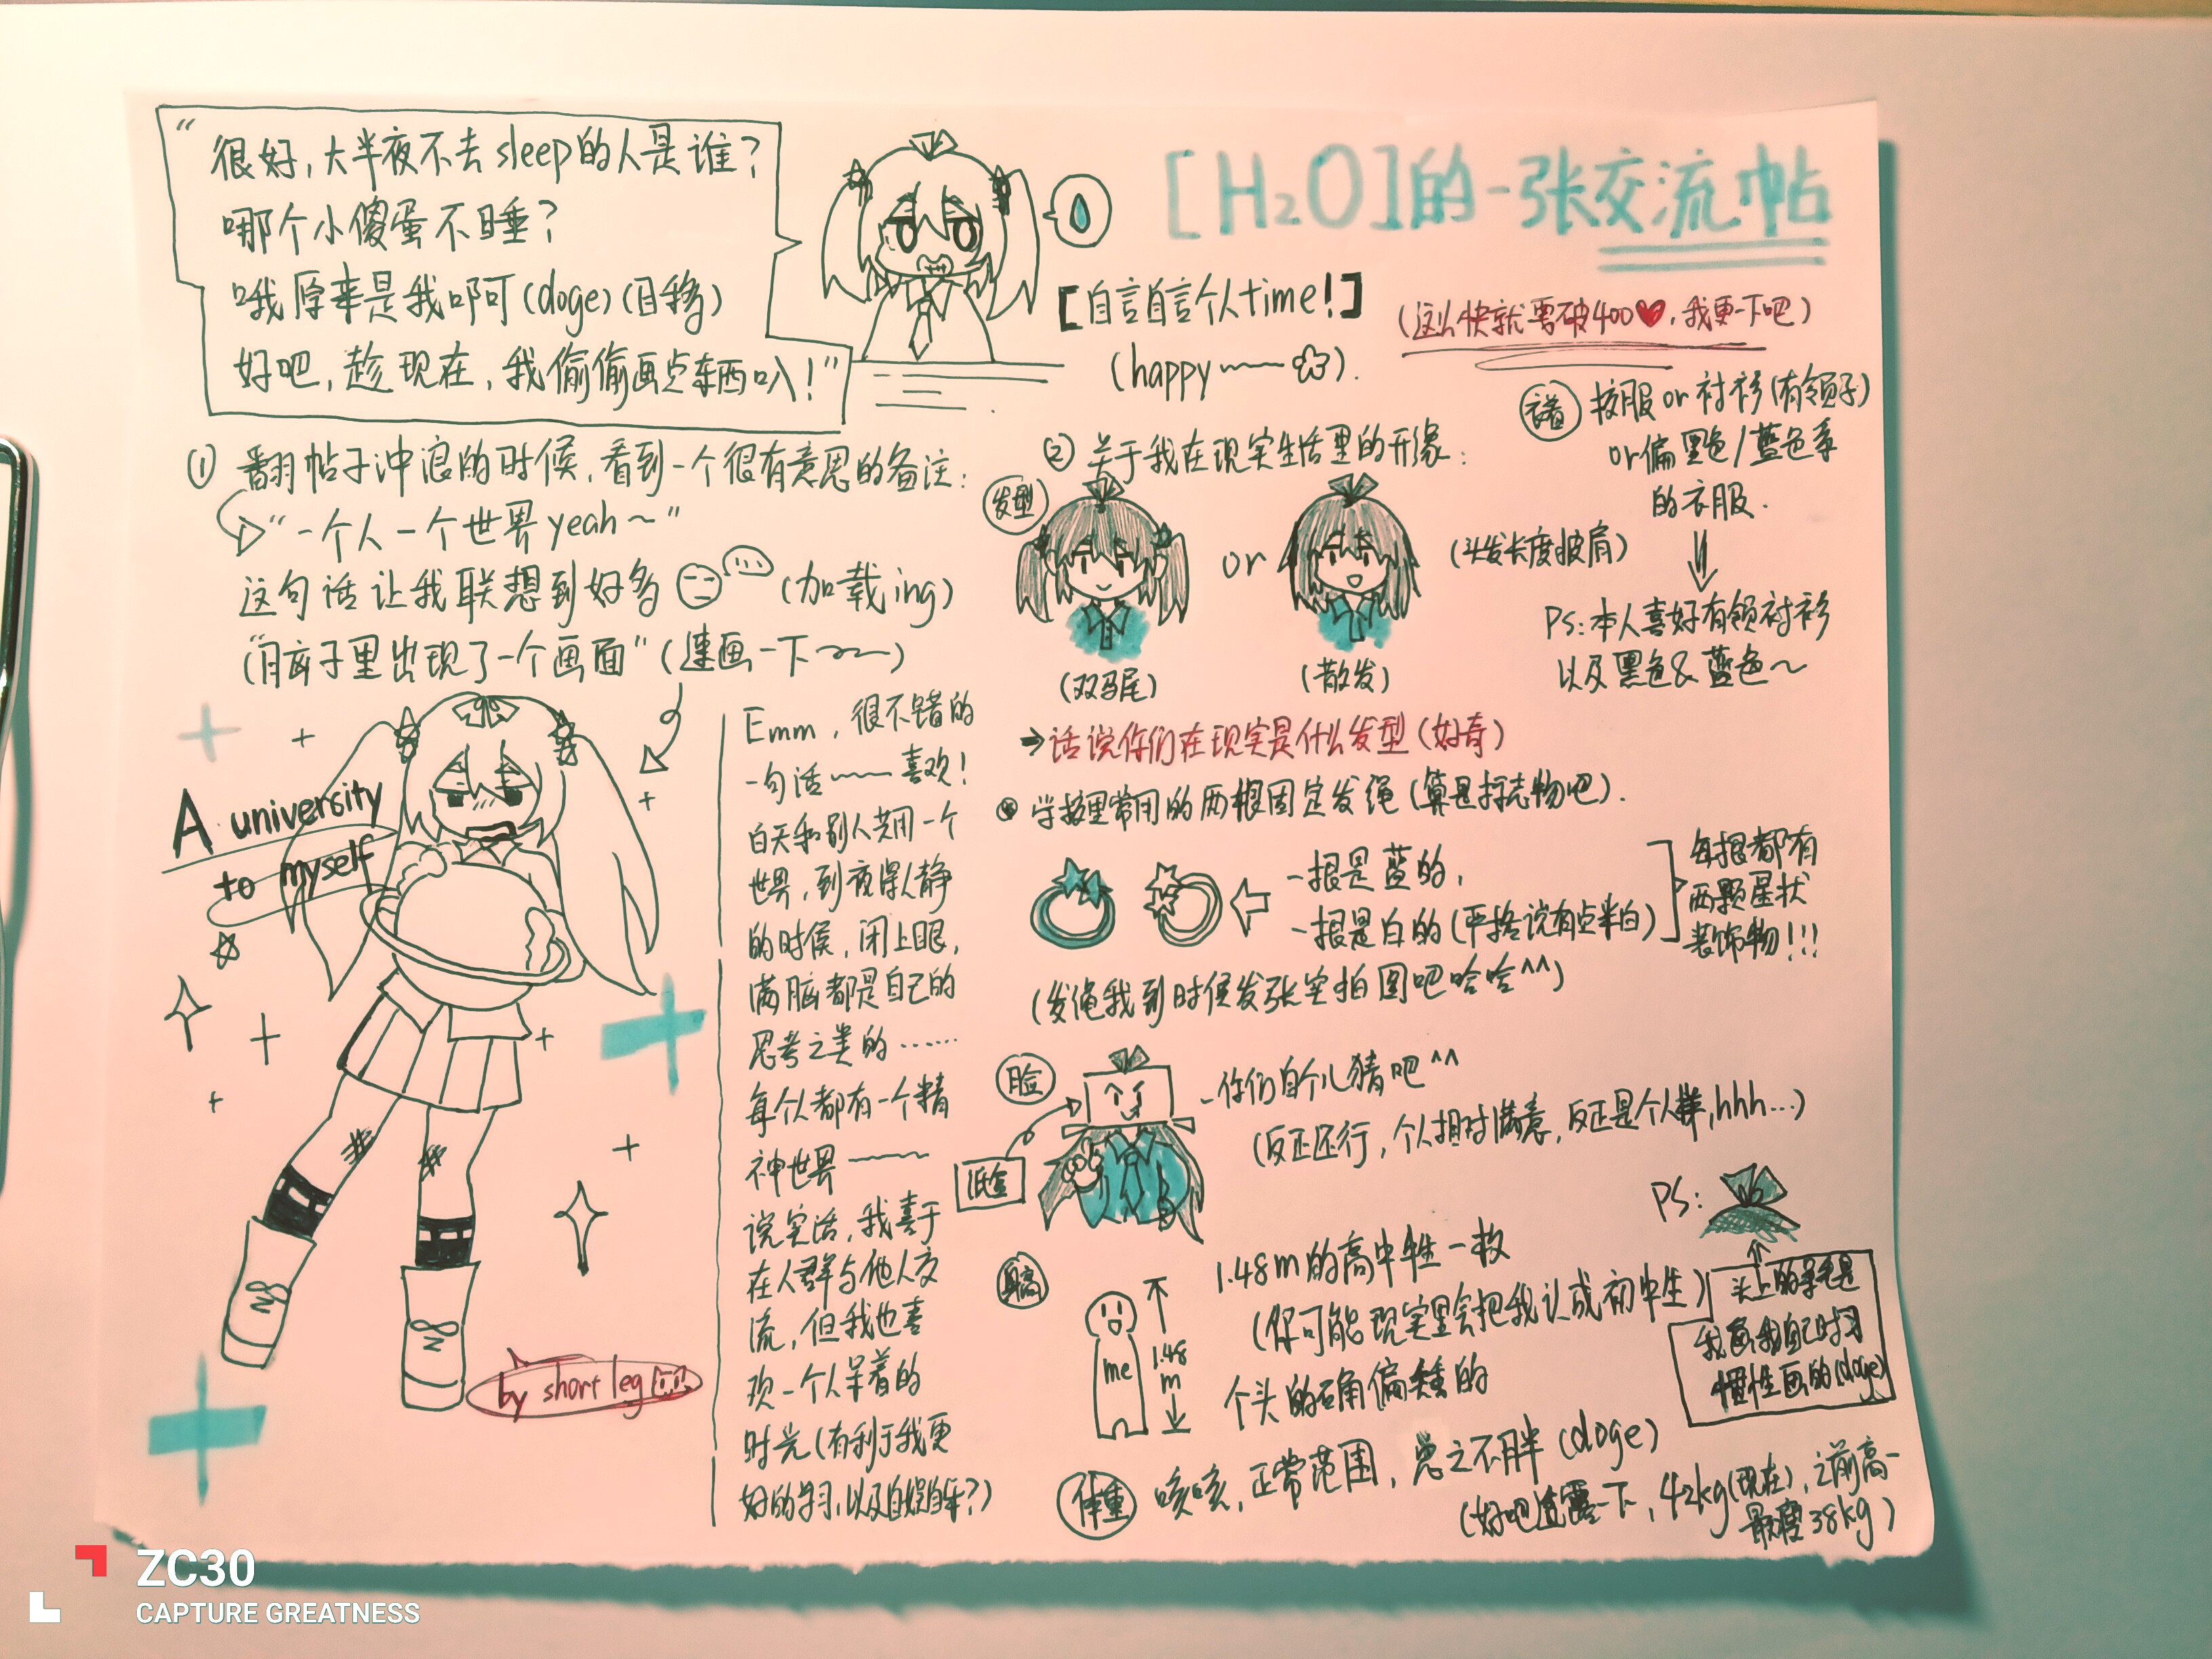 “很好，大半夜不去sleep的人是谁？
哪个小傻蛋不睡？
哦原来是我啊(doge)(目移)
好吧，趁现在，我偷偷画点东西叭！”
[H₂O]的一张交流帖
[自言自言个人time！]
(happy~~)
(这么快就要破400❤，我更一下吧)
① 翻帖子冲浪的时候，看到一个很有意思的备注：
“一个人一个世界yeah～”
这句话让我联想到好多 (加载ing)
(“脑子里出现了一个画面”(速画一下~~)
A university
to myself
by short leg
Emm，很不错的
一句话~~喜欢！
白天和别人共用一个
世界，到夜深人静
的时候，闭上眼，
满脑都是自己的
思考之类的……
每个人都有一个精
神世界——
说实话，我喜于
在人群与他人交
流，但我也喜
欢一个人呆着的
时光(有利于我更
好的学习，以及自娱自乐？)
② 关于我在现实生活里的形象：
发型
or
(头发长度披肩)
(双马尾)
(散发)
衣着
校服or衬衫(有领子)
or偏黑色/蓝色系
的衣服．
PS:本人喜好有领衬衫
以及黑色&蓝色～
→话说你们在现实是什么发型(好奇)
学校里常用的两根固定发绳(算是标志物吧)．
一根是蓝的，
一根是白的(严格说有点米白)
每根都有
两颗星状
装饰物！！！
(发绳我到时候发张实拍图吧哈哈^^)
脸
-你们自个儿猜吧^^
(反正还行，个人相对满意，反正是个人样,hhh…)
纸盒
PS:
头上的呆毛是
我画我自己时习
惯性画的(doge)
身高
me
1.48
m
1.48m的高中生一枚
(你可能现实里会把我认成初中生)
个头的确偏矮的
体重
咳咳，正常范围，总之不胖(doge)
(好吧透露一下，42kg(现在)，之前高一
最瘦38kg)
ZC30
CAPTURE GREATNESS